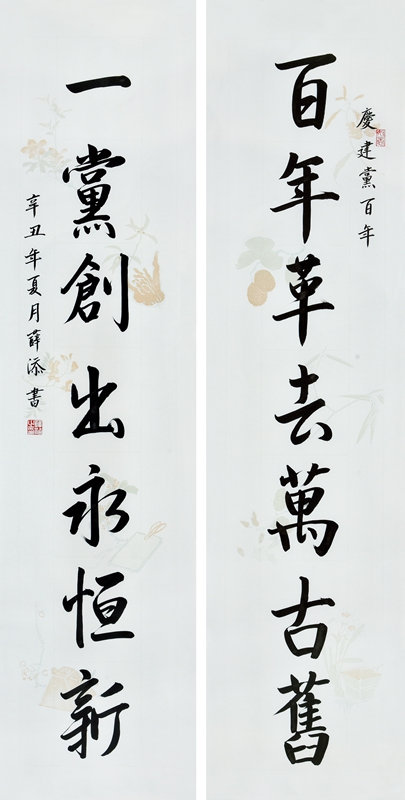 慶建黨百年
百年革去萬古舊
一黨創出永恒新
辛丑年夏月薛添書